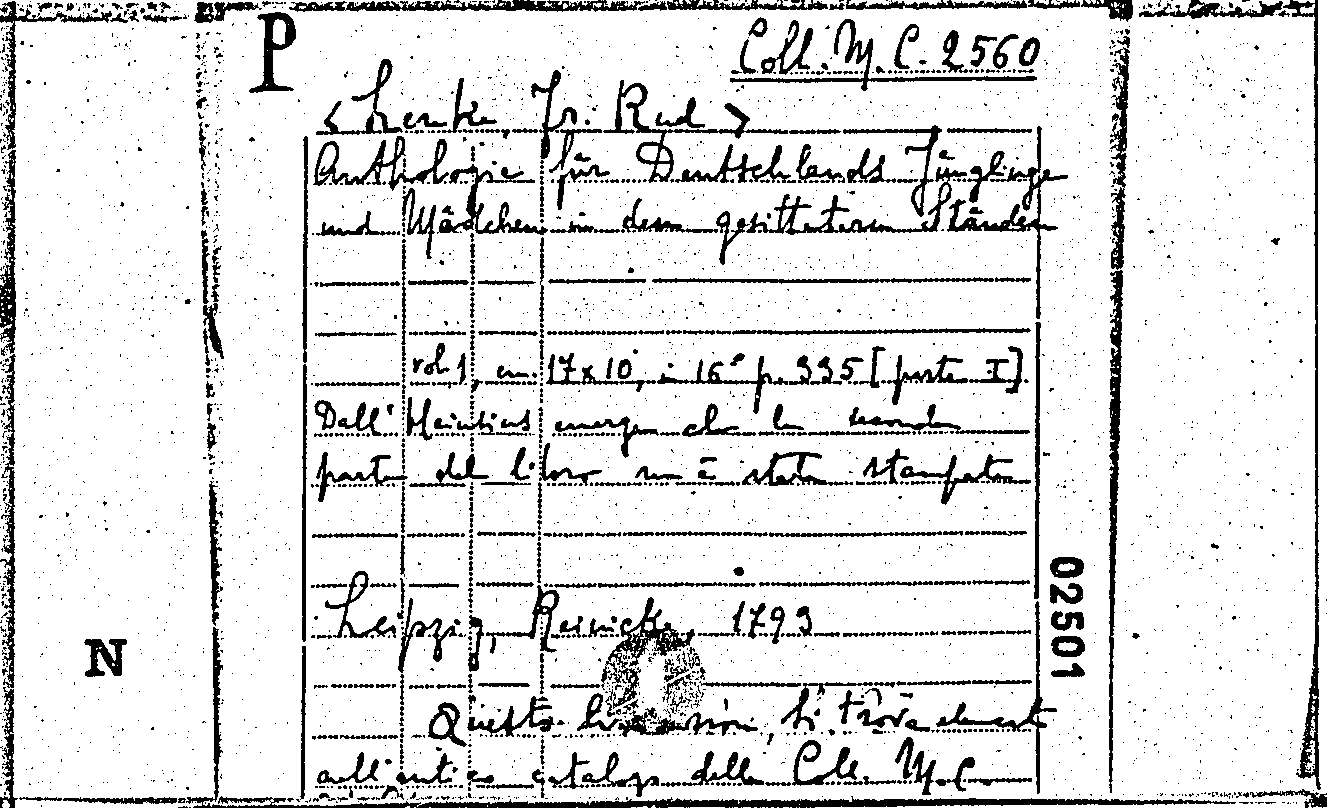 P
Coll. M. C. 2560
< Lenke, Fr. Rud >
Anthologie für Deutschlands Jünglinge
und Mädchen in dem gesitteteren Ständen
vol. 1, cm. 17x10, in 16° p. 335 [parte I]
Dall' Heinsius emerge che la seconda
parte del libro non è stata stampata
Leipzig, Reinicke, 1793
02501
N
Questo libro non, si trova elencato
nell'antico catalogo della Coll. M.C.